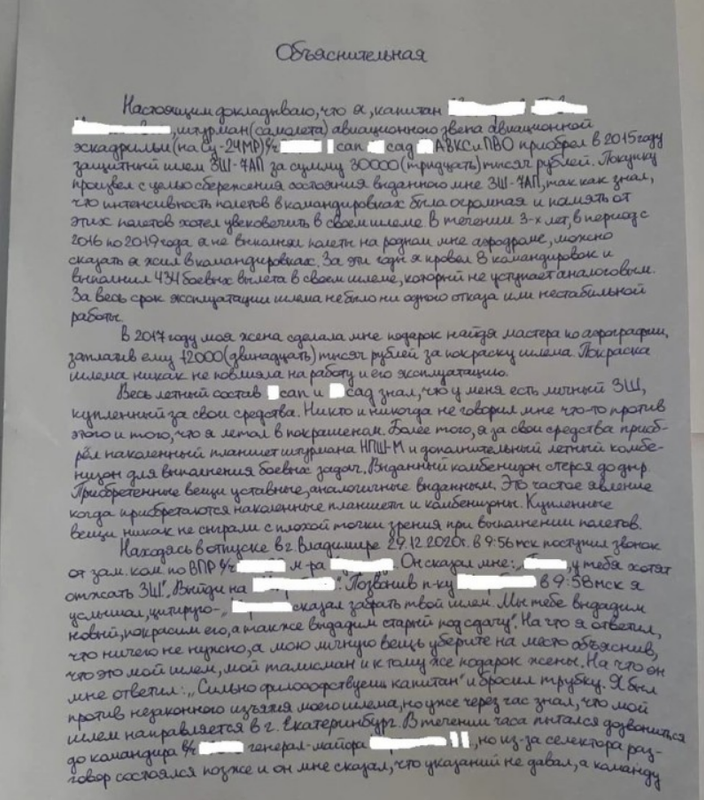 Объяснительная
Настоящим докладываю, что я, капитан
, штурман (самолета) авиационного звена авиационной
эскадрильи (на Су-24МР) в/ч сап сад АВКС и ПВО приобрел в 2015 году
защитный шлем ЗШ-7АП за сумму 30000 (тридцать) тысяч рублей. Покупку
произвел с целью сбережения состояния выданного мне ЗШ-7АП, так как знал,
что интенсивность полетов в командировках была огромная и память от
этих полетов хотел увековечить в своем шлеме. В течении 3-х лет, в период с
2016 по 2019 года я не выполнял полеты на родном мне аэродроме, можно
сказать я жил в командировках. За эти годы я провел 8 командировок и
выполнил 434 боевых вылета в своем шлеме, который не уступает аналоговым.
За весь срок эксплуатации шлема не было ни одного отказа или нестабильной
работы.
В 2017 году моя жена сделала мне подарок найдя мастера по аэрографии,
заплатив ему 12000 (двинадцать) тысяч рублей за покраску шлема. Покраска
шлема никак не повлияла на работу и его эксплуатацию.
Весь летный состав сап и сад знал, что у меня есть личный ЗШ,
купленный за свои средства. Никто и никогда не говорил мне что-то против
этого и того, что я летал в покрашеном. Более того, я за свои средства приоб-
рёл наколенный планшет штурмана НПШ-М и дополнительный летный комбе-
низон для выполнения боевых задач. Выданный комбенизон стерся до дыр.
Приобретенные вещи уставные, аналогичные выданным. Это частое явление
когда приобретаются наколенные планшеты и комбенизоны. Купленные
вещи никак не сыграли с плохой точки зрения при выполнении полетов.
Находясь в отпуске в г. Владимире 29.12.2020г. в 9:56 мск поступил звонок
от зам. ком. по ВПР в/ч м-ра . Он сказал мне: „ , у тебя хотят
отжать ЗШ". Выйди на ". Позвонив п-ку в 9:58 мск я
услышал, цитирую - „ сказал забрать твой шлем. Мы тебе выдадим
новый, покрасим его, а также выдадим старый под сдачу". На что я ответил,
что ничего не нужно, а мою личную вещь уберите на место объяснив,
что это мой шлем, мой талисман и к тому же подарок жены. На что он
мне ответил: „Сильно философствуешь капитан" и бросил трубку. Я был
против незаконного изъятия моего шлема, но уже через час знал, что мой
шлем направляется в г. Екатеринбург. В течении часа питался дозвониться
до командира в/ч генерал-майора , но из-за селектора раз-
говор состоялся позже и он мне сказал, что указаний не давал, а команду